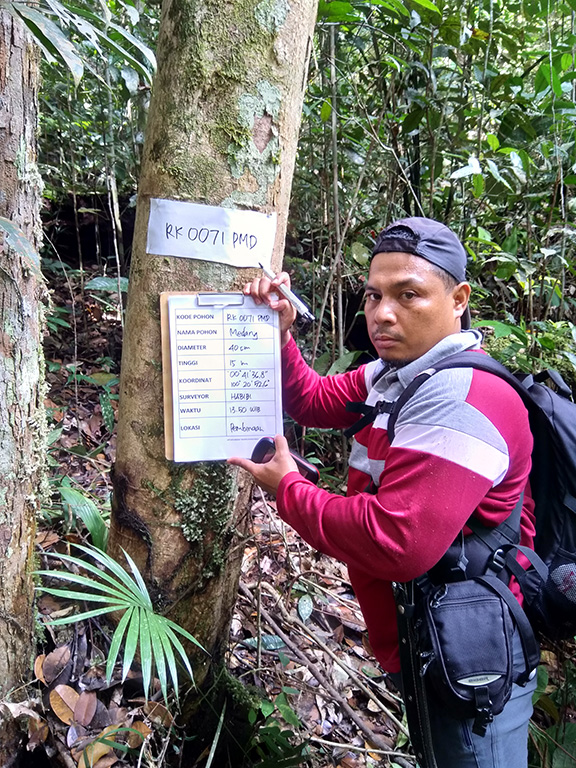 RK 0071 PMD
KODE POHON RK 0071 PMD
NAMA POHON Medang
DIAMETER 40 cm
TINGGI 15 m
KOORDINAT 00° 41' 36.8"
100° 20' 52.6"
SURVEYOR HABIBI
WAKTU 13.50 WIB
LOKASI